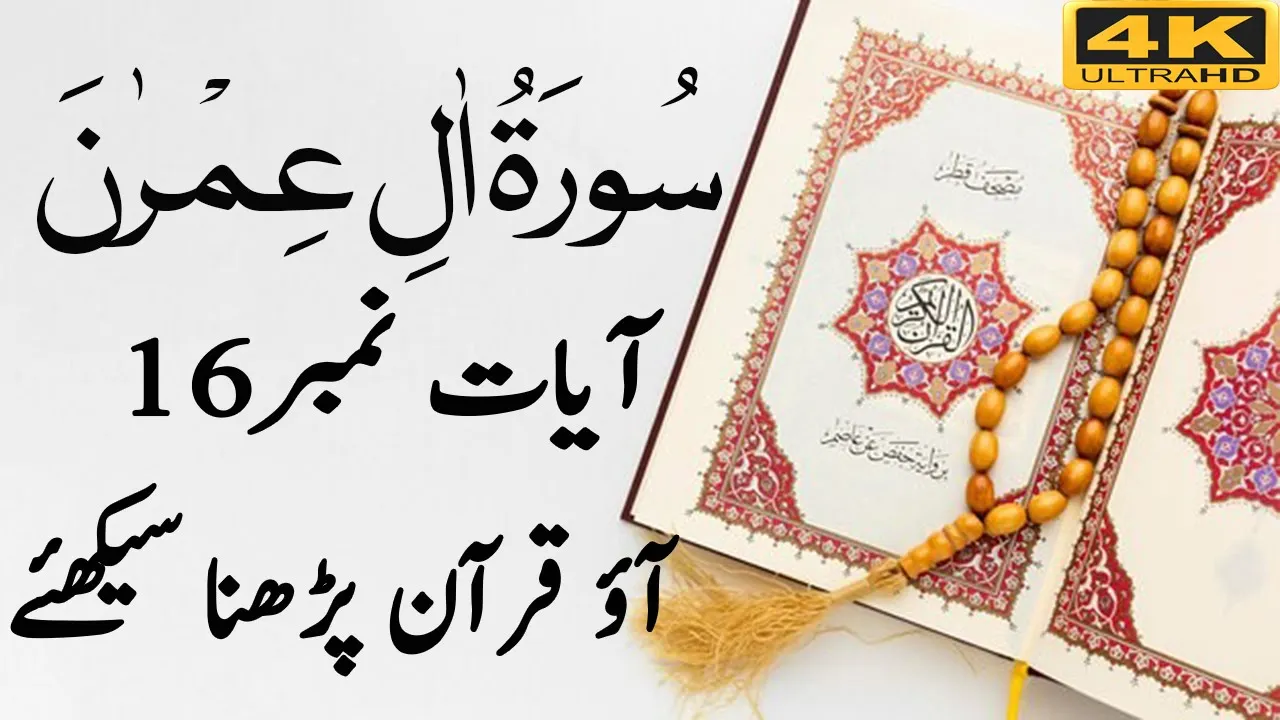 سُورَةُ اٰلِ عِمْرٰنَ
آیات نمبر 16
آؤ قرآن پڑھنا سیکھئے
4K
ULTRA HD
مصحف قطر
القرآن الكريم
برواية حفص عن عاصم